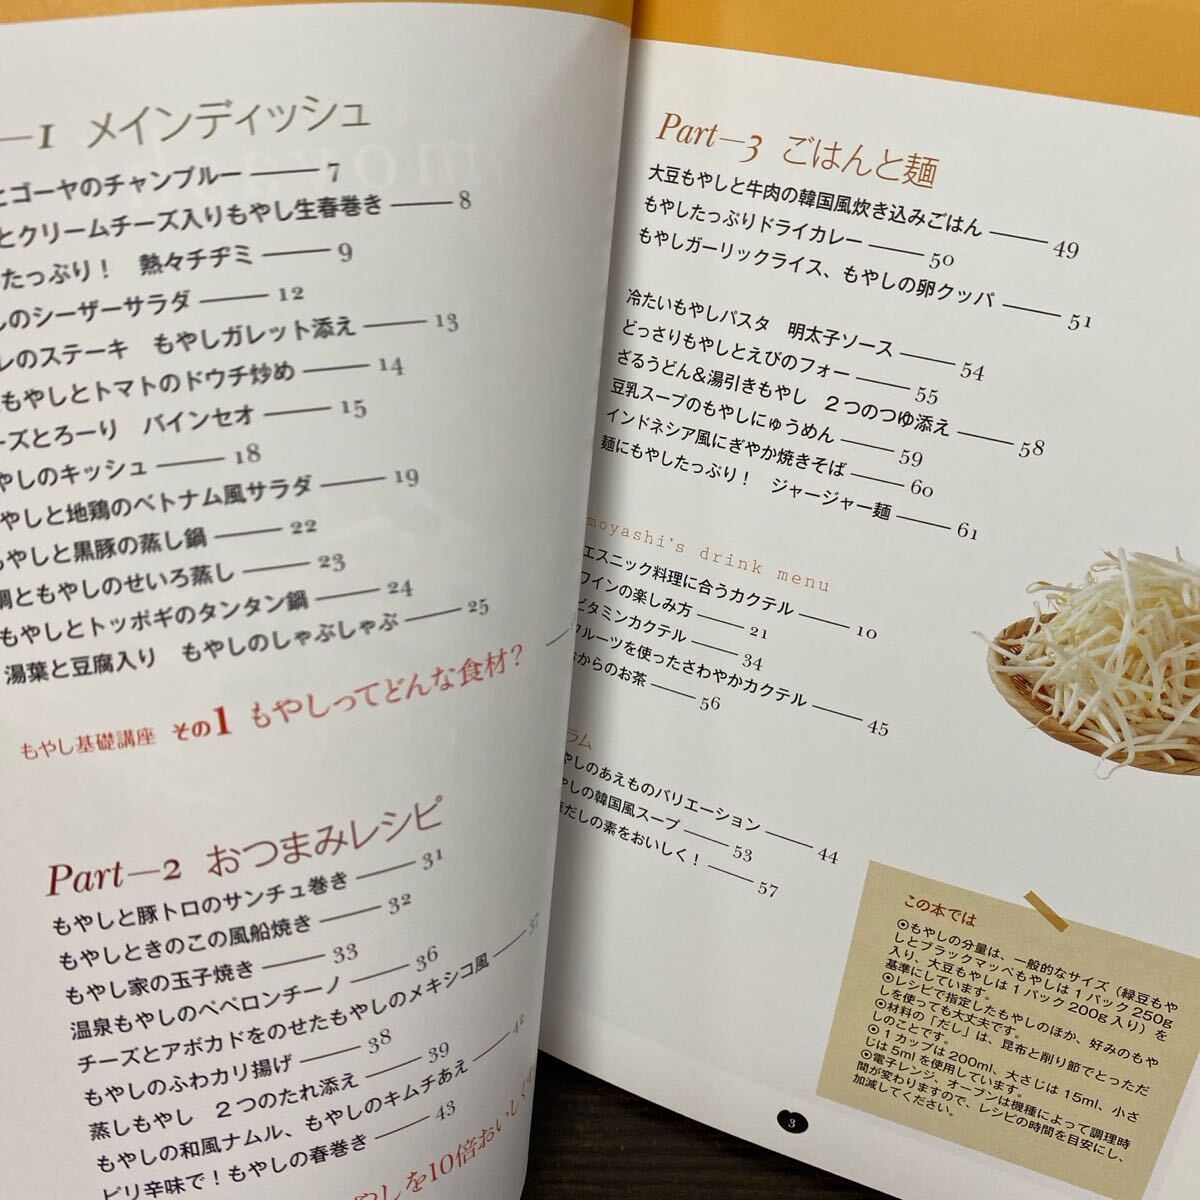 —1 メインディッシュ
とゴーヤのチャンプルー —— 7
とクリームチーズ入りもやし生春巻き —— 8
たっぷり！　熱々チヂミ —— 9
しのシーザーサラダ —— 12
しのステーキ　もやしガレット添え —— 13
もやしとトマトのドウチ炒め —— 14
ーズとろーり　バインセオ —— 15
やしのキッシュ —— 18
やしと地鶏のベトナム風サラダ —— 19
もやしと黒豚の蒸し鍋 —— 22
鯛ともやしのせいろ蒸し —— 23
もやしとトッポギのタンタン鍋 —— 24
湯葉と豆腐入り　もやしのしゃぶしゃぶ —— 25
もやし基礎講座 その1 もやしってどんな食材？ ——
Part—2 おつまみレシピ
もやしと豚トロのサンチュ巻き —— 31
もやしときのこの風船焼き —— 32
もやし家の玉子焼き —— 33
温泉もやしのペペロンチーノ —— 36
チーズとアボカドをのせたもやしのメキシコ風 —— 37
もやしのふわカリ揚げ —— 38
蒸しもやし　2つのたれ添え —— 39
もやしの和風ナムル、もやしのキムチあえ —— 42
ピリ辛味で！もやしの春巻き —— 43
やしを10倍おいしく
Part—3 ごはんと麺
大豆もやしと牛肉の韓国風炊き込みごはん —— 49
もやしたっぷりドライカレー —— 50
もやしガーリックライス、もやしの卵クッパ —— 51
冷たいもやしパスタ　明太子ソース —— 54
どっさりもやしとえびのフォー —— 55
ざるうどん＆湯引きもやし　2つのつゆ添え —— 58
豆乳スープのもやしにゅうめん —— 59
インドネシア風にぎやか焼きそば —— 60
麺にもやしたっぷり！　ジャージャー麺 —— 61
moyashi's drink menu
エスニック料理に合うカクテル —— 10
ワインの楽しみ方 —— 21
ビタミンカクテル —— 34
フルーツを使ったさわやかカクテル —— 45
からのお茶 —— 56
ラム
やしのあえものバリエーション —— 44
やしの韓国風スープ —— 53
だしの素をおいしく！ —— 57
この本では
◉もやしの分量は、一般的なサイズ（緑豆もや
しとブラックマッペもやしは1パック250g
入り、大豆もやしは1パック200g入り）を
基準にしています。
◉レシピで指定したもやしのほか、好みのもや
しを使っても大丈夫です。
◉材料の「だし」は、昆布と削り節でとっただ
しのことです。
◉1カップは200ml、大さじは15ml、小さ
じは5mlを使用しています。
◉電子レンジ、オーブンは機種によって調理時
間が変わりますので、レシピの時間を目安にし、
加減してください。
3